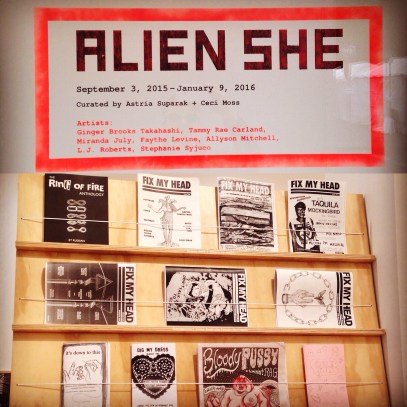 ALIEN SHE
September 3, 2015 – January 9, 2016
Curated by Astria Suparak + Ceci Moss
Artists:
Ginger Brooks Takahashi, Tammy Rae Carland,
Miranda July, Faythe Levine, Allyson Mitchell,
L.J. Roberts, Stephanie Syjuco
THE
RinG OF FiRE
ANTHOLOGY
ET RUSSIAN
FIX MY HEAD
FIX MY HEAD
TAQUILA
MOCKINGBIRD
FIX MY HEAD
FIX MY HEAD
FIX MY HEAD
FIX MY HEAD
it's down in this
DIG MY DRESS
Bloody PUSSY
RAG